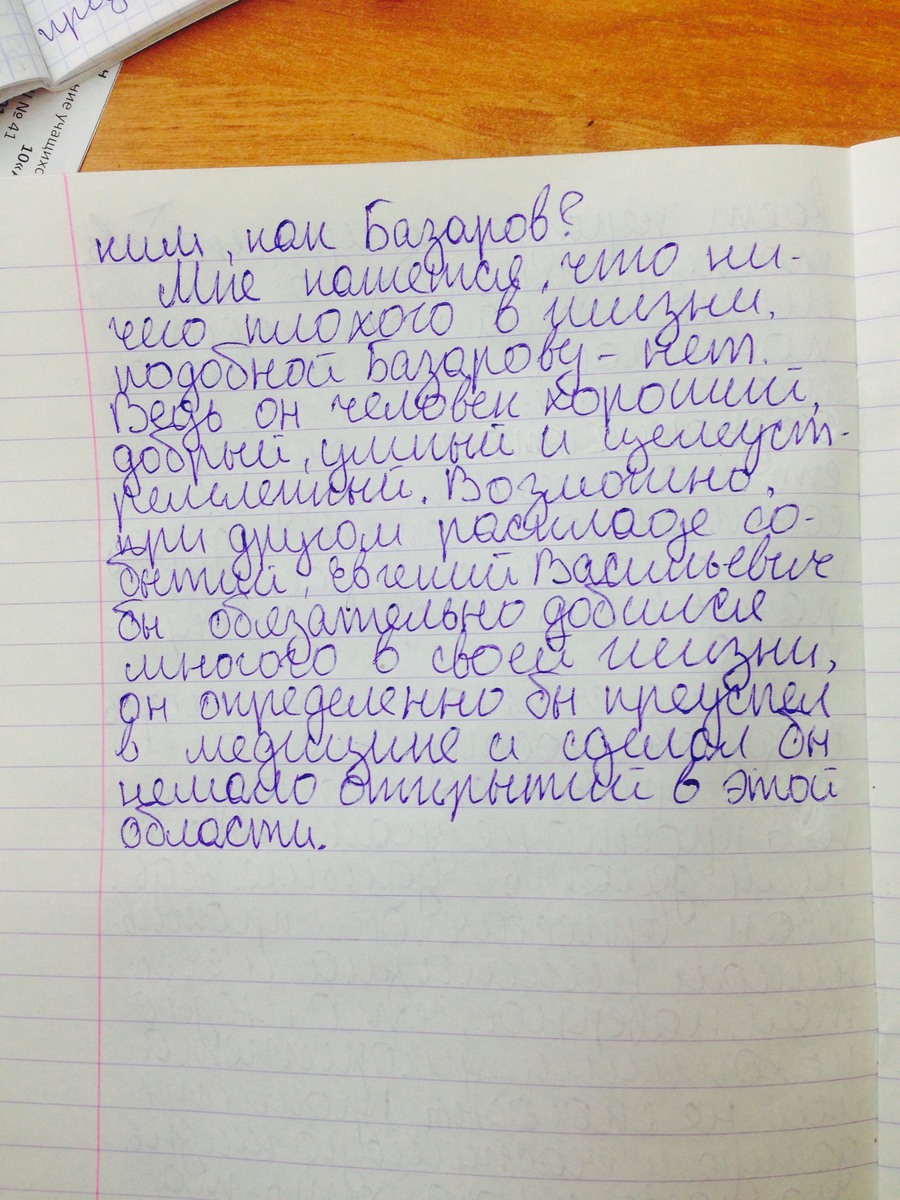 ние учащихс
№ 41
10«
ким, как Базаров?
Мне кажется, что ни-
чего плохого в жизни,
подобной Базарову - нет.
Ведь он человек хороший,
добрый, умный и целеуст-
ремленный. Возможно,
при другом раскладе со-
бытий, Евгений Васильевич
бы обязательно добился
многого в своей жизни,
он определенно бы преуспел
в медицине и сделал бы
немало открытий в этой
области.